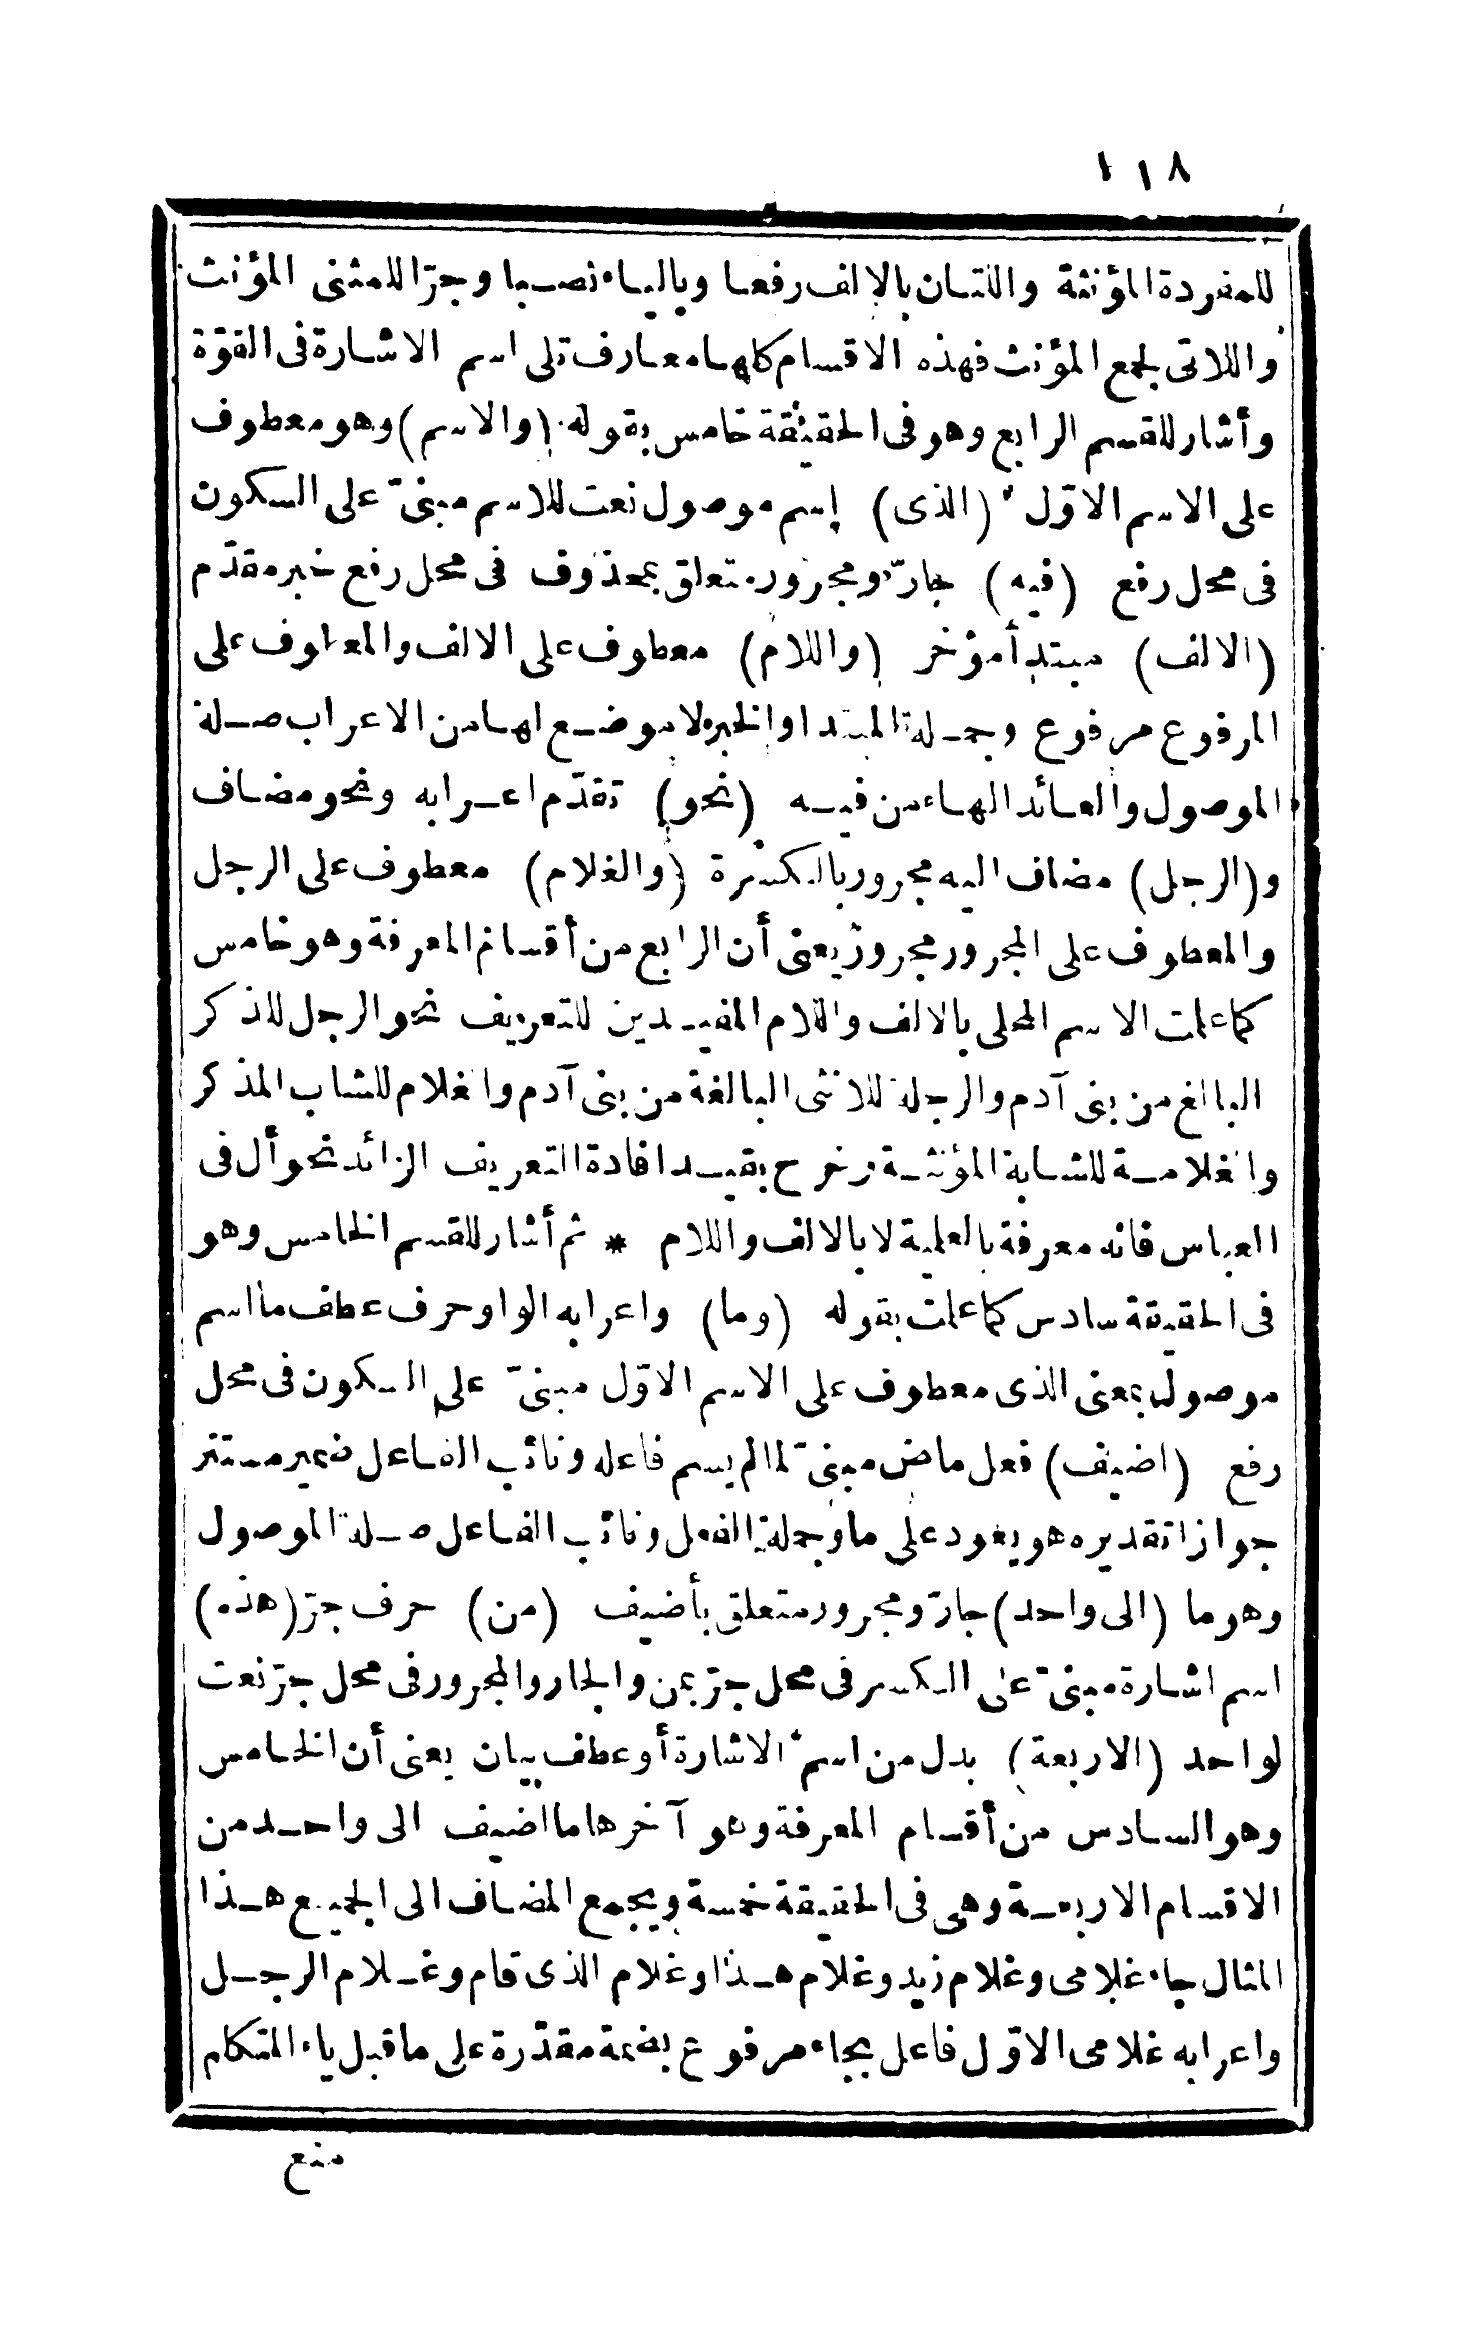 ١١٨
للمفردة المؤنثة واللتان بالالف رفعا وبالياء نصبا وجرّا للمثنى المؤنث
واللاتى لجمع المؤنث فهذه الاقسام كلها معارف تلى اسم الاشارة فى القوّة
وأشار للقسم الرابع وهو فى الحقيقة خامس بقوله (والاسم) وهو معطوف
على الاسم الاوّل (الذى) إسم موصول نعت للاسم مبنىّ على السكون
فى محل رفع (فيه) جارّ ومجرور متعلق بمحذوف فى محل رفع خبر مقدّم
(الالف) مبتدأ مؤخر (واللام) معطوف على الالف والمعطوف على
المرفوع مرفوع وجملة المبتدا والخبر لا موضع لها من الاعراب صلة
الموصول والعائد الهاء من فيه (نحو) تقدّم اعرابه ونحو مضاف
و(الرجل) مضاف اليه مجرور بالكسرة (والغلام) معطوف على الرجل
والمعطوف على المجرور مجرور يعنى أن الرابع من أقسام المعرفة وهو خامس
كما علمت الاسم المحلى بالالف واللام المفيدين للتعريف نحو الرجل للذكر
البالغ من بنى آدم والرجلة للانثى البالغة من بنى آدم والغلام للشاب المذكر
والغلامة للشابة المؤنثة وخرج بقيد افادة التعريف الزائد نحو أل فى
العباس فانه معرفة بالعلمية لا بالالف واللام * ثم أشار للقسم الخامس وهو
فى الحقيقة سادس كما علمت بقوله (وما) واعرابه الواو حرف عطف ما اسم
موصول بمعنى الذى معطوف على الاسم الاوّل مبنىّ على السكون فى محل
رفع (اضيف) فعل ماض مبنىّ لما لم يسم فاعله ونائب الفاعل ضمير مستتر
جوازا تقديره هو يعود على ما وجملة الفعل ونائب الفاعل صلة الموصول
وهو ما (الى واحد) جارّ ومجرور متعلق بأضيف (من) حرف جرّ (هذه)
اسم اشارة مبنىّ على الكسر فى محل جرّ بمن والجار والمجرور فى محل جرّ نعت
لواحد (الاربعة) بدل من اسم الاشارة أو عطف بيان يعنى أن الخامس
وهو السادس من أقسام المعرفة وهو آخرها ما اضيف الى واحد من
الاقسام الاربعة وهى فى الحقيقة خمسة ويجمع المضاف الى الجميع هذا
المثال جاء غلامى وغلام زيد وغلام هذا وغلام الذى قام وغلام الرجل
واعرابه غلامى الاوّل فاعل بجاء مرفوع بضمة مقدّرة على ما قبل ياء المتكلم
منع